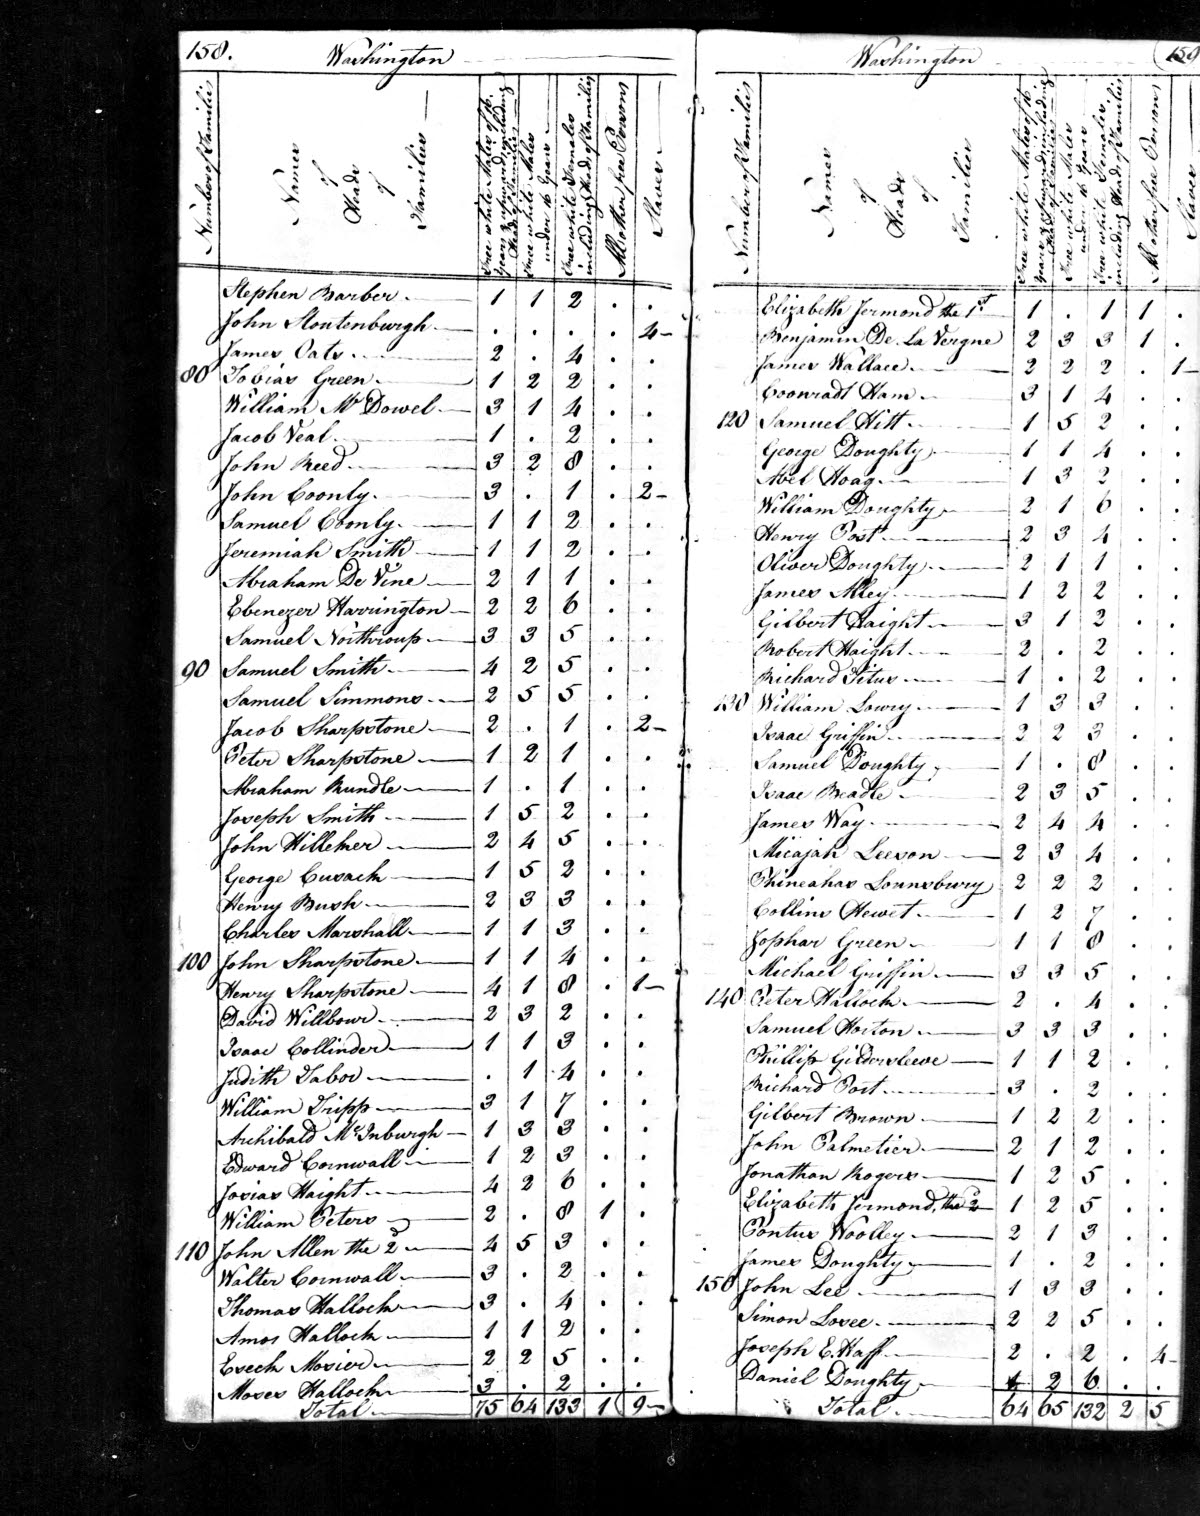 158. Washington
Number of Families
Names of Heads of Families
Free white Males of 16 Years & upwards including Heads of Families
Free white Males under 16 Years
Free white Females including Heads of Families
All other free Persons
Slaves
Stephen Barber 1 1 2 . .
John Stoutenburgh . . . . 4
James Oats 2 . 4 . .
80 Tobias Green 1 2 2 . .
William Mc Dowel 3 1 4 . .
Jacob Veal 1 . 2 . .
John Reed 3 2 8 . .
John Coonly 3 . 1 . 2
Samuel Coonly 1 1 2 . .
Jeremiah Smith 1 1 2 . .
Abraham De Vine 2 1 1 . .
Ebenezer Harrington 2 2 6 . .
Samuel Northroup 3 3 5 . .
90 Samuel Smith 4 2 5 . .
Samuel Simmons 2 5 5 . .
Jacob Sharpstone 2 . 1 . 2
Peter Sharpstone 1 2 1 . .
Abraham Rundle 1 . 1 . .
Joseph Smith 1 5 2 . .
John Hilleker 2 4 5 . .
George Cusack 1 5 2 . .
Henry Bush 2 3 3 . .
Charles Marshall 1 1 3 . .
100 John Sharpstone 1 1 4 . .
Henry Sharpstone 4 1 8 . 1
David Willbour 2 3 2 . .
Isaac Collinder 1 1 3 . .
Judith Tabor . 1 4 . .
William Tripp 3 1 7 . .
Archibald McInburgh 1 3 3 . .
Edward Cornwall 1 2 3 . .
Josias Haight 4 2 6 . .
William Peters 2 . 8 1 .
110 John Allen the 2d 4 5 3 . .
Walter Cornwall 3 . 2 . .
Thomas Hallock 3 . 4 . .
Amos Hallock 1 1 2 . .
Esech Mosier 2 2 5 . .
Moses Hallock 3 . 2 . .
Total 75 64 133 1 9
Washington 159
Number of Families
Names of Heads of Families
Free white Males of 16 Years & upwards including Heads of Families
Free white Males under 16 Years
Free white Females including Heads of Families
All other free Persons
Slaves
Elizabeth Jermond the 1st 1 . 1 1 .
Benjamin De La Vergne 2 3 3 1 .
James Wallace 2 2 2 . 1
Coonradt Ham 3 1 4 . .
120 Samuel Hitt 1 5 2 . .
George Doughty 1 1 4 . .
Abel Hoag 1 3 2 . .
William Doughty 2 1 6 . .
Henry Post 2 3 4 . .
Oliver Doughty 2 1 1 . .
James Alley 1 2 2 . .
Gilbert Haight 3 1 2 . .
Robert Haight 2 . 2 . .
Richard Titus 1 . 2 . .
130 William Lowry 1 3 3 . .
Isaac Griffin 2 2 3 . .
Samuel Doughty 1 . 8 . .
Isaac Beadle 2 3 5 . .
James Way 2 4 4 . .
Micajah Leeson 2 3 4 . .
Phineahas Lounsbury 2 2 2 . .
Collins Hewet 1 2 7 . .
Zophar Green 1 1 8 . .
Michael Griffin 3 3 5 . .
140 Peter Hallock 2 . 4 . .
Samuel Horton 3 3 3 . .
Phillip Gildersleeve 1 1 2 . .
Richard Post 3 . 2 . .
Gilbert Brown 1 2 2 . .
John Palmetier 2 1 2 . .
Jonathan Rogers 1 2 5 . .
Elizabeth Jermond, the 2d 1 2 5 . .
Pontus Woolley 2 1 3 . .
James Doughty 1 . 2 . .
150 John Lee 1 3 3 . .
Simon Losee 2 2 5 . .
Joseph E. Haff 2 . 2 . 4
Daniel Doughty 1 2 6 . .
Total 64 65 132 2 5